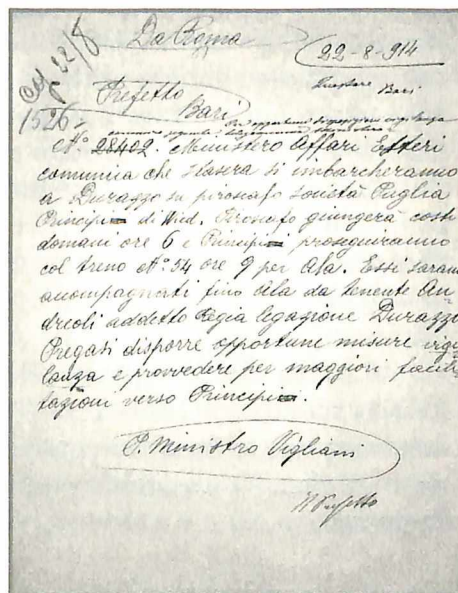 Da Roma
22-8-914
Questore Bari
22/8
1526
Prefetto
Bari
per opportune disposizioni vigilanza
comunico seguente telegramma
N° 28402. Ministero Affari Esteri
comunica che stasera si imbarcheranno
a Durazzo su piroscafo società Puglia
Principi di Wied. Piroscafo giungerà costì
domani ore 6 e Principi proseguiranno
col treno N° 54 ore 9 per Ala. Essi saran
accompagnati fino Ala da tenente An
dreoli addetto Regia legazione Durazzo
Pregasi disporre opportune misure vigi
lanza e provvedere per maggiori facili
tazioni verso Principi.
P. Ministro Vigliani
Il Prefetto